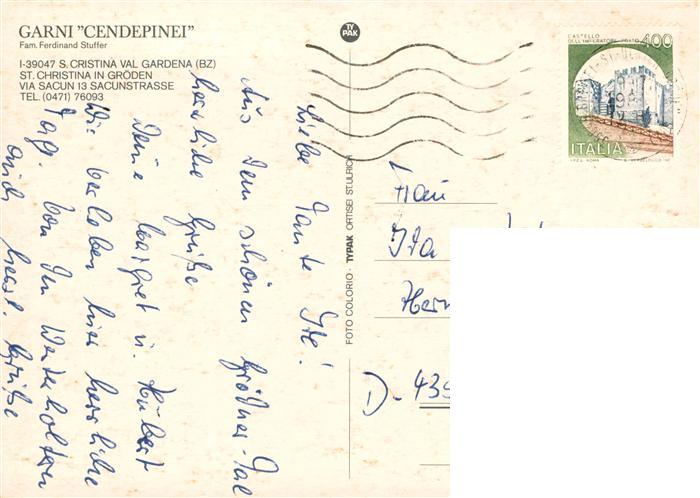 GARNI "CENDEPINEI"
Fam. Ferdinand Stuffer
I-39047 S. CRISTINA VAL GARDENA (BZ)
ST. CHRISTINA IN GRÖDEN
VIA SACUN 13 SACUNSTRASSE
TEL. (0471) 76093
TY
PAK
FOTO COLORIO · TYPAK ORTISEI ST.ULRICH
CASTELLO
DELL'IMPERATORE PRATO
400
ITALIA
I.P.Z.S. ROMA
Liebe Tante Ite!
Aus dem schönen Grödner-Tal
herzliche Grüße
Deine Margret u. Hubert
Wir verleben hier herrliche
Tag. Von den Weterholtern
auch herzl. Grüße
Frau
Ita
Her
D-435